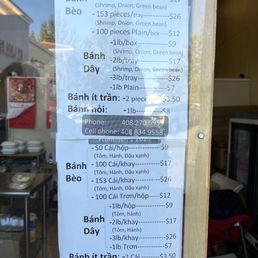 Bánh
(Shrimp, Onion, Green bean)
Bèo - 153 pieces/tray--------$26
(Shrimp, Onion, Green bean)
- 100 pieces Plain/box----$12
-1lb/box-----------$9
(Shrimp, Onion, Green bean)
Bánh -2lb/tray----------$17
Dây (Shrimp, Onion, Green bean)
-3lb/tray----------$26
-1lb Plain----------$7
Bánh ít trần: -2 pieces $3.50
Bánh hỏi: -1lb $8
Phone: 408 270
Cell phone: 408 834 9558
- 50 Cái/hộp-----------$9
(Tôm, Hành, Đậu xanh)
Bánh - 100 Cái/khay---------$17
Bèo (Tôm, Hành, Đậu xanh)
- 153 Cái/khay---------$26
(Tôm, Hành, Đậu xanh)
- 100 Cái Trơn/hộp-----$12
-1lb/hộp----------$9
Bánh (Tôm, Hành)
-2lb/khay---------$17
Dây (Tôm, Hành)
-3lb/khay----------$26
-1lb Trơn----------$7
Bánh ít trần: -2 Cái------$3.50